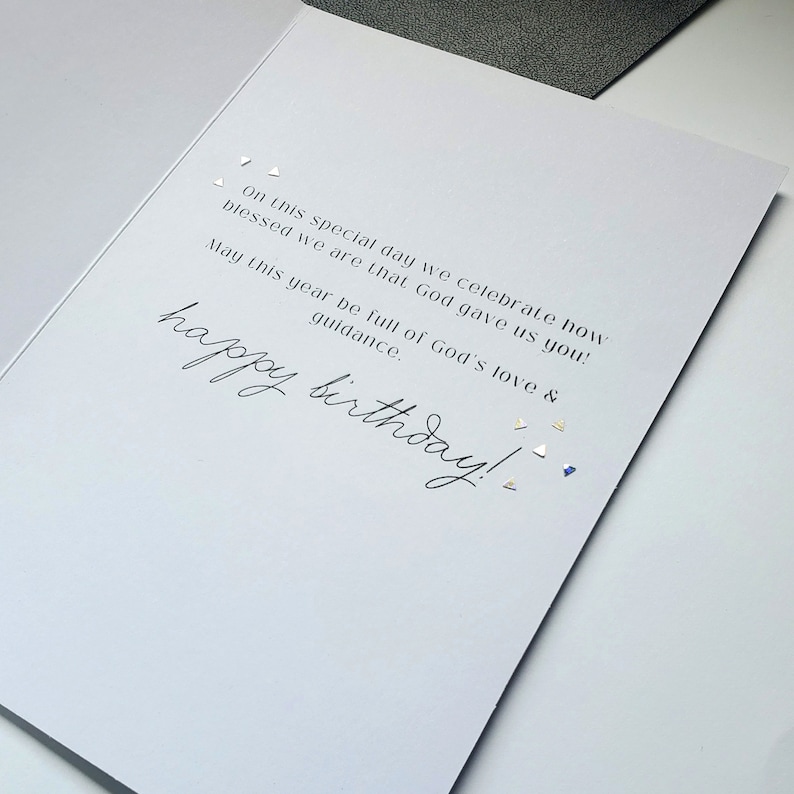 On this special day we celebrate how
blessed we are that God gave us you!
May this year be full of God's love &
guidance.
happy birthday!